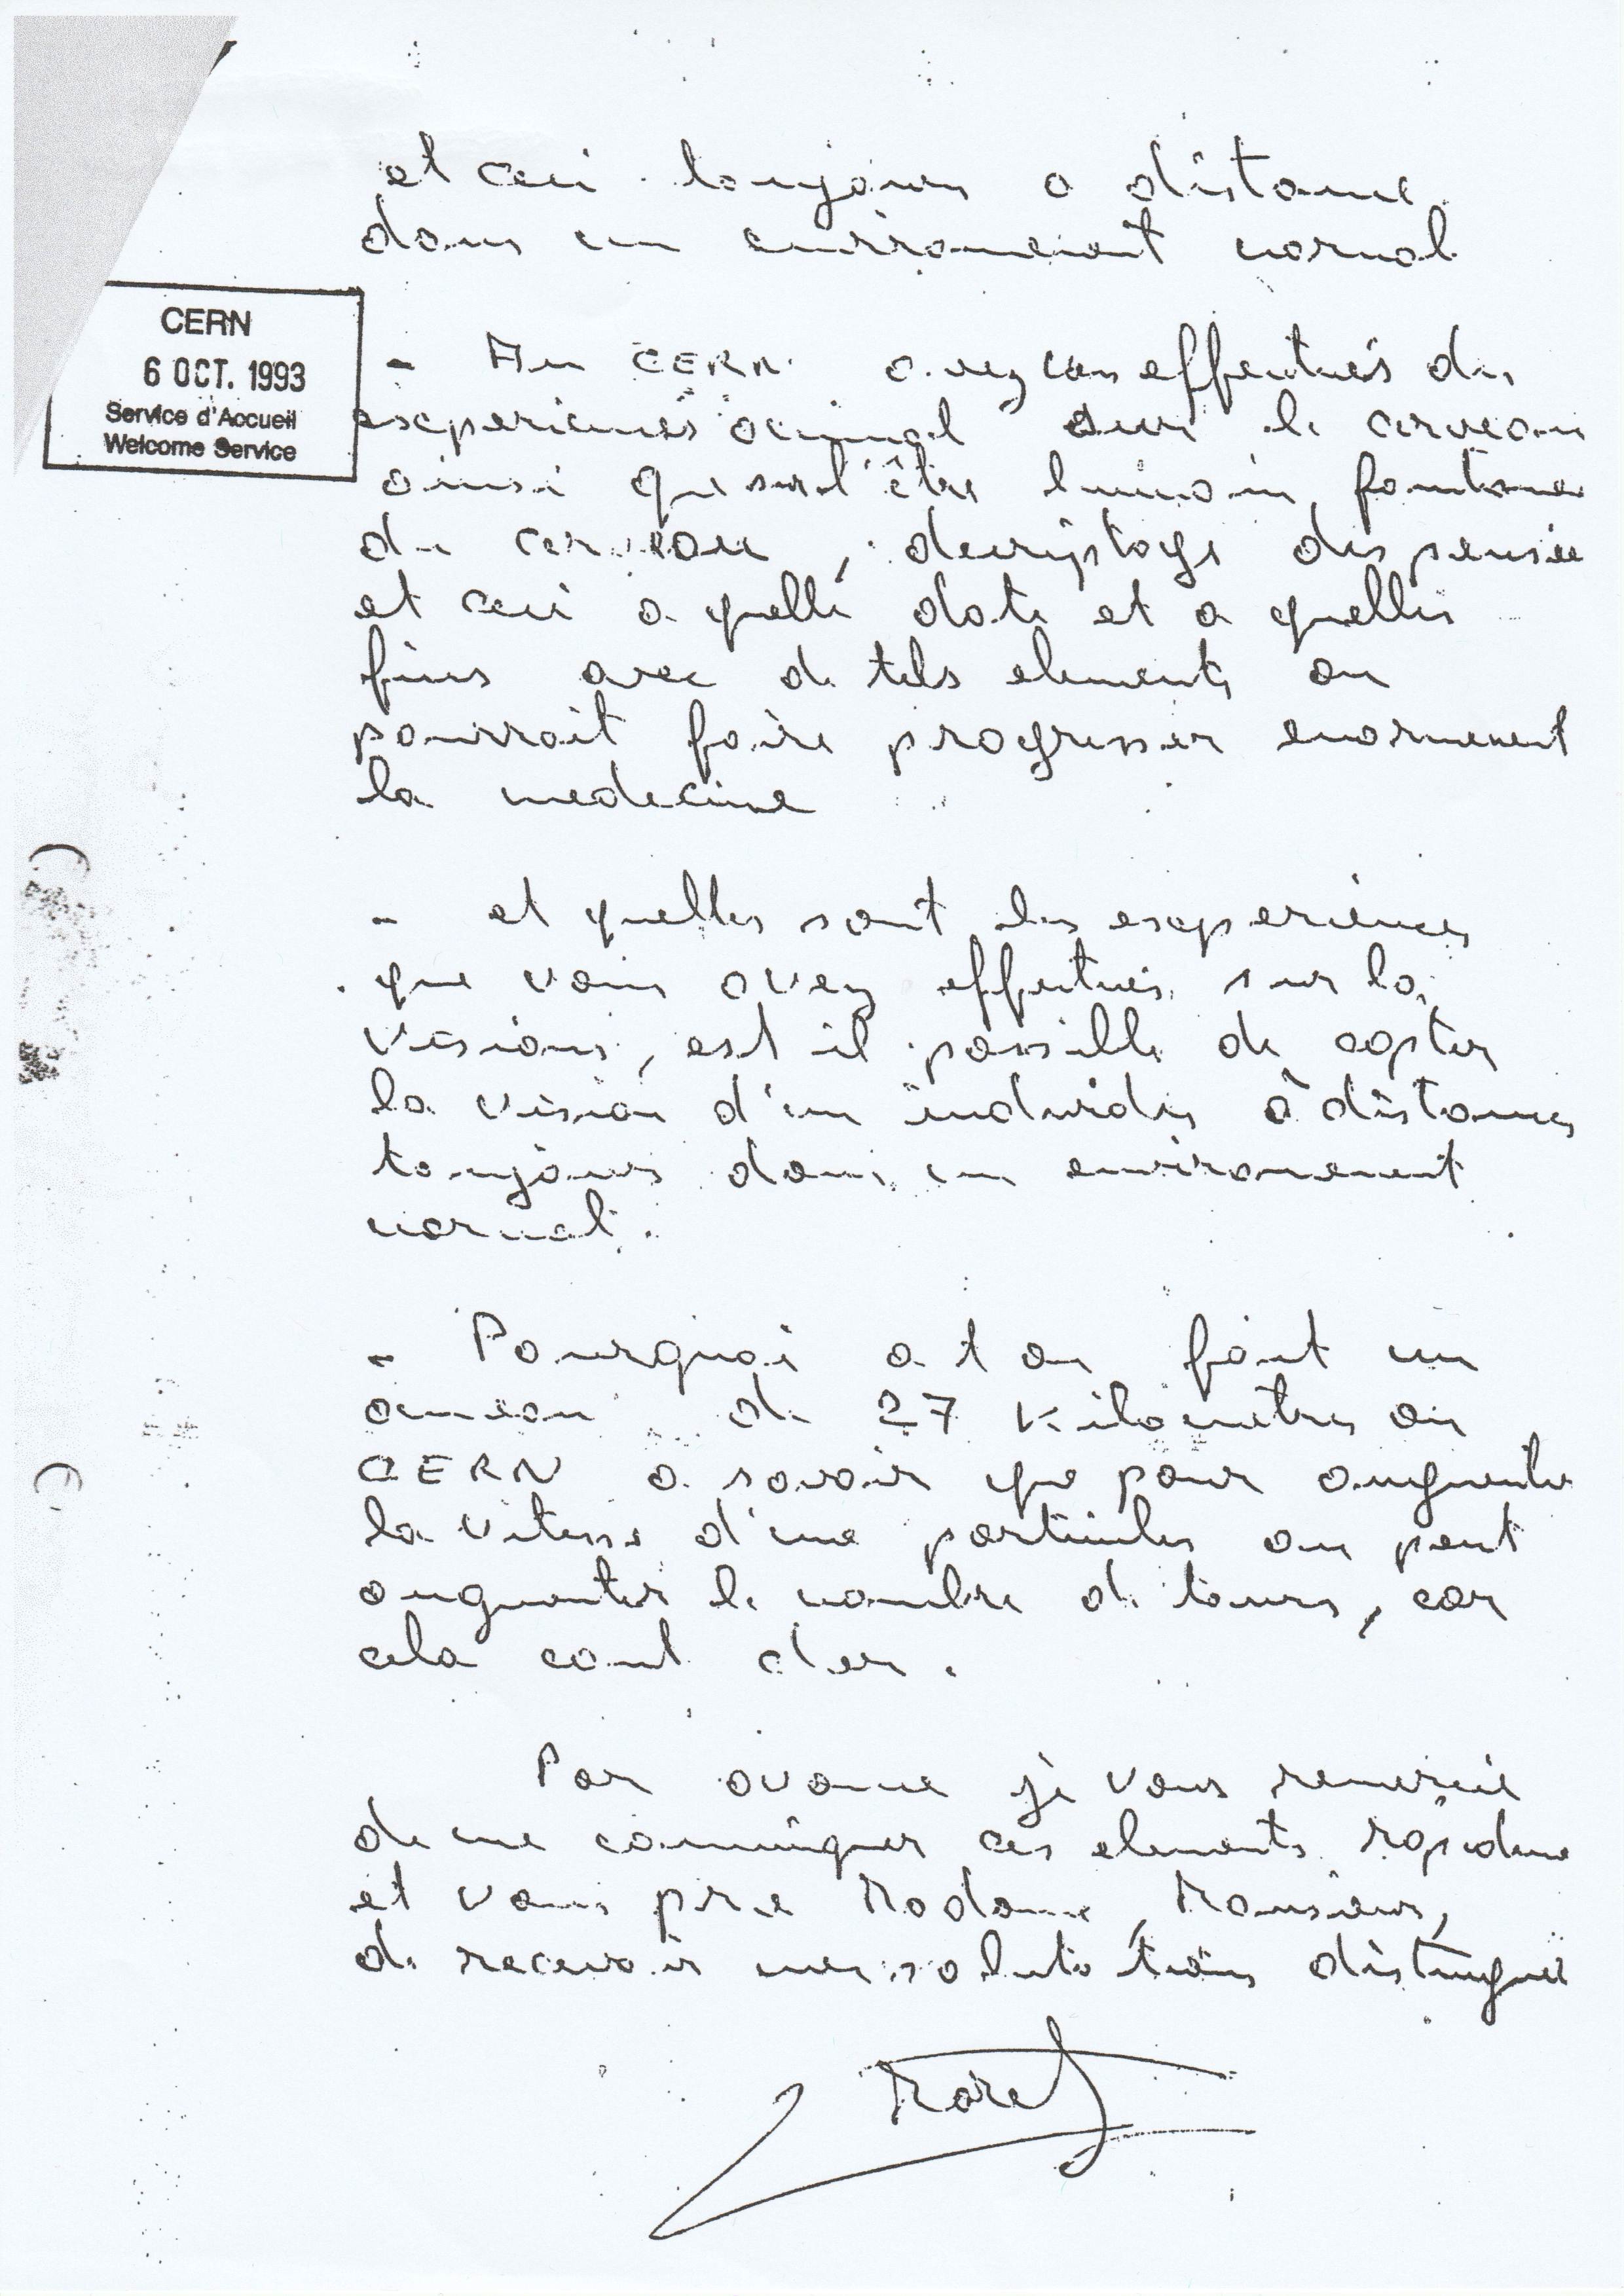 et ceci toujours a distance
dans un environement normal
CERN
6 OCT. 1993
Service d'Accueil
Welcome Service
- Au CERN avez vous effectués des
experiences animal sur le cerveau
ainsi que sur l'être humain, fontione
du cerveau, decriptage des pensée
et ceci a quelle date et a quelles
fins avec de tels elements on
pourrait faire progresser enormement
la medecine
- et quelles sont les experiences
que vous avez effectués sur la
visions, est il possible de capter
la vision d'un individus à distances
toujours dans un environement
normal.
- Pourquoi a t on fait un
anneau de 27 Kilometres au
CERN a savoir que pour augmenter
la vitesse d'une particules on peut
augmenter le nombre de tours, car
cela cout cher.
Par avance je vous remercie
de me communiquer ces elements rapideme
et vous prie Madame, Monsieur,
de recevoir mes salutations distingué